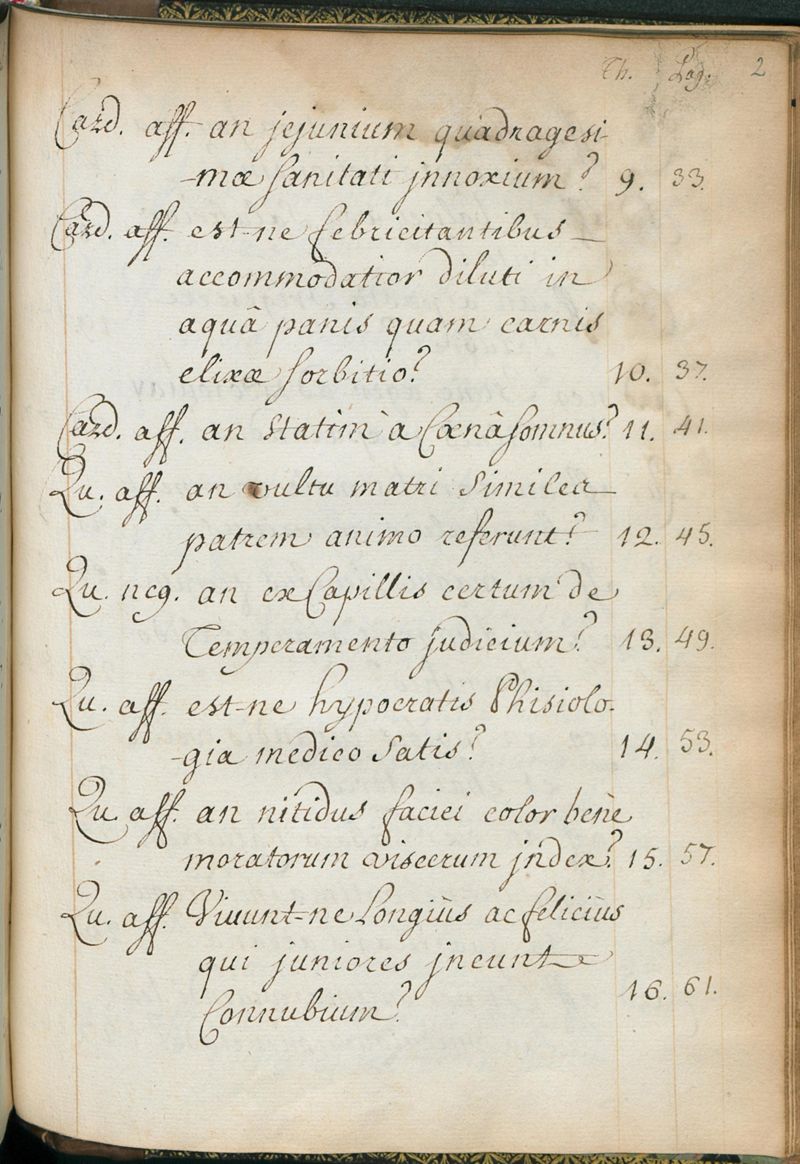 Th. Pag. 2
Card. aff. an jejunium quadragesi
-mæ sanitati jnnoxium? 9. 33.
Card. aff. est-ne febricitantibus
accommodatior diluti in
aquâ panis quam carnis
elixæ sorbitio? 10. 37.
Card. aff. an statim à Cœnâ somnus? 11. 41.
Qu. aff. an vultu matri similes
patrem animo referunt? 12. 45.
Qu. neg. an ex Capillis certum de
Temperamento judicium? 13. 49.
Qu. aff. est-ne hypocratis Phisiolo-
-gia medico satis? 14. 53.
Qu. aff. an nitidus faciei color benè
moratorum viscerum jndex? 15. 57.
Qu. aff. Vivunt-ne Longiùs ac feliciùs
qui juniores jneunt
Connubium? 16. 61.